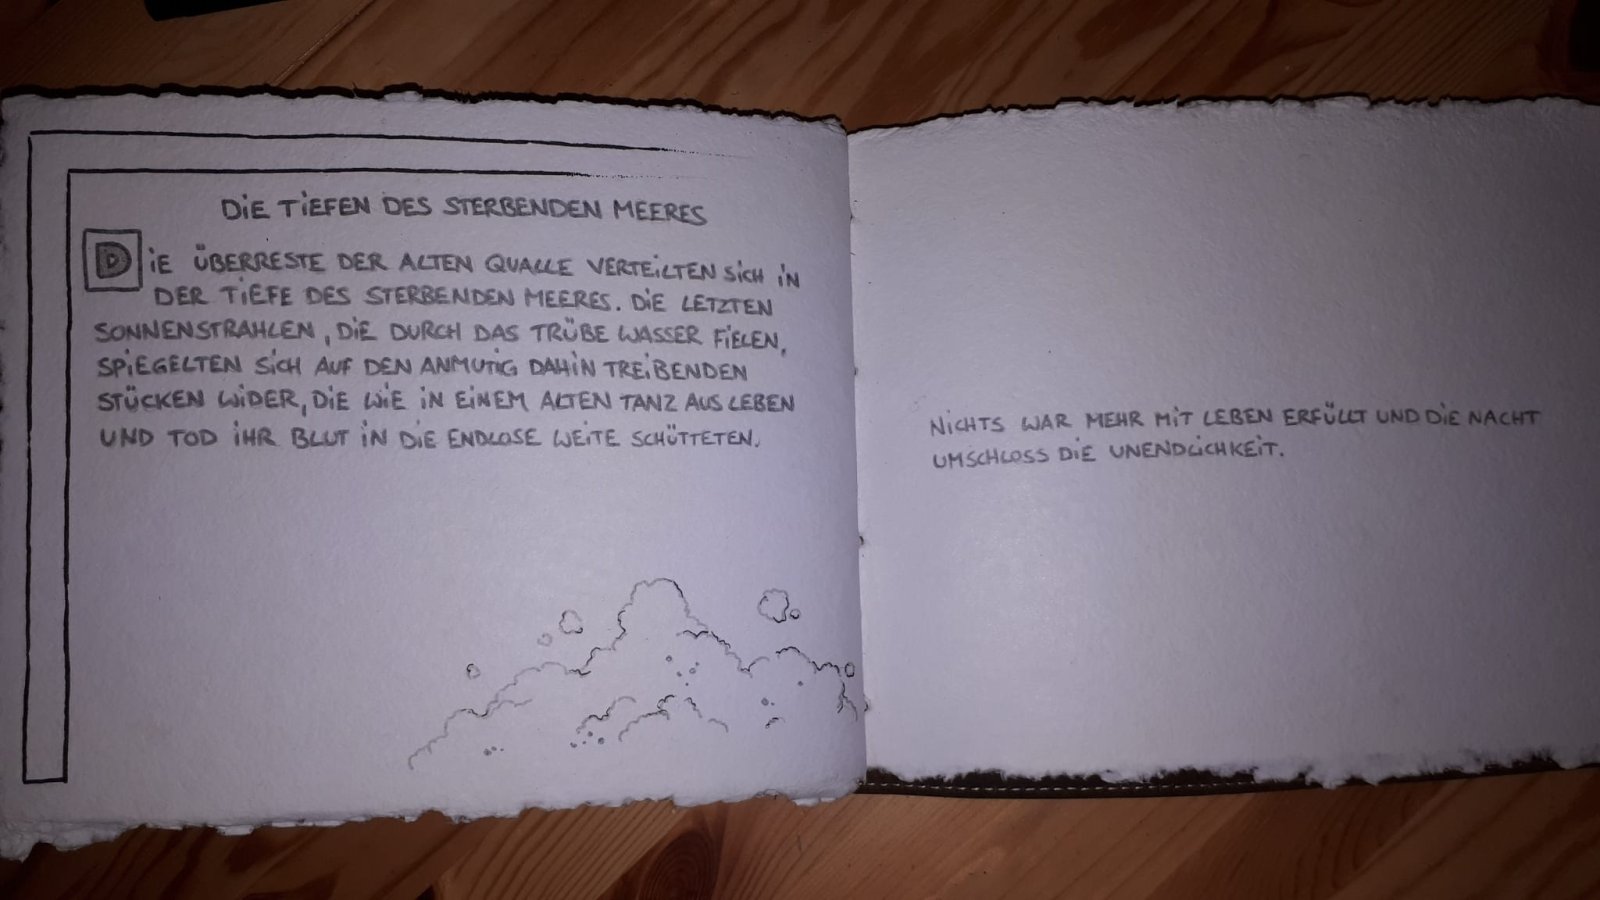 DIE TIEFEN DES STERBENDEN MEERES
DIE ÜBERRESTE DER ALTEN QUALLE VERTEILTEN SICH IN
DER TIEFE DES STERBENDEN MEERES. DIE LETZTEN
SONNENSTRAHLEN, DIE DURCH DAS TRÜBE WASSER FIELEN,
SPIEGELTEN SICH AUF DEN ANMUTIG DAHIN TREIBENDEN
STÜCKEN WIDER, DIE WIE IN EINEM ALTEN TANZ AUS LEBEN
UND TOD IHR BLUT IN DIE ENDLOSE WEITE SCHÜTTETEN.
NICHTS WAR MEHR MIT LEBEN ERFÜLLT UND DIE NACHT
UMSCHLOSS DIE UNENDLICHKEIT.